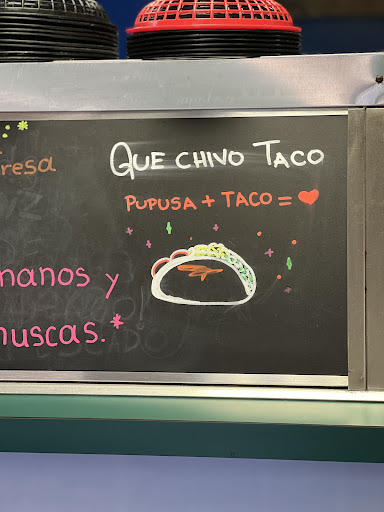 QUE CHIVO TACO
PUPUSA + TACO = ❤
resa
manos y
muscas.*